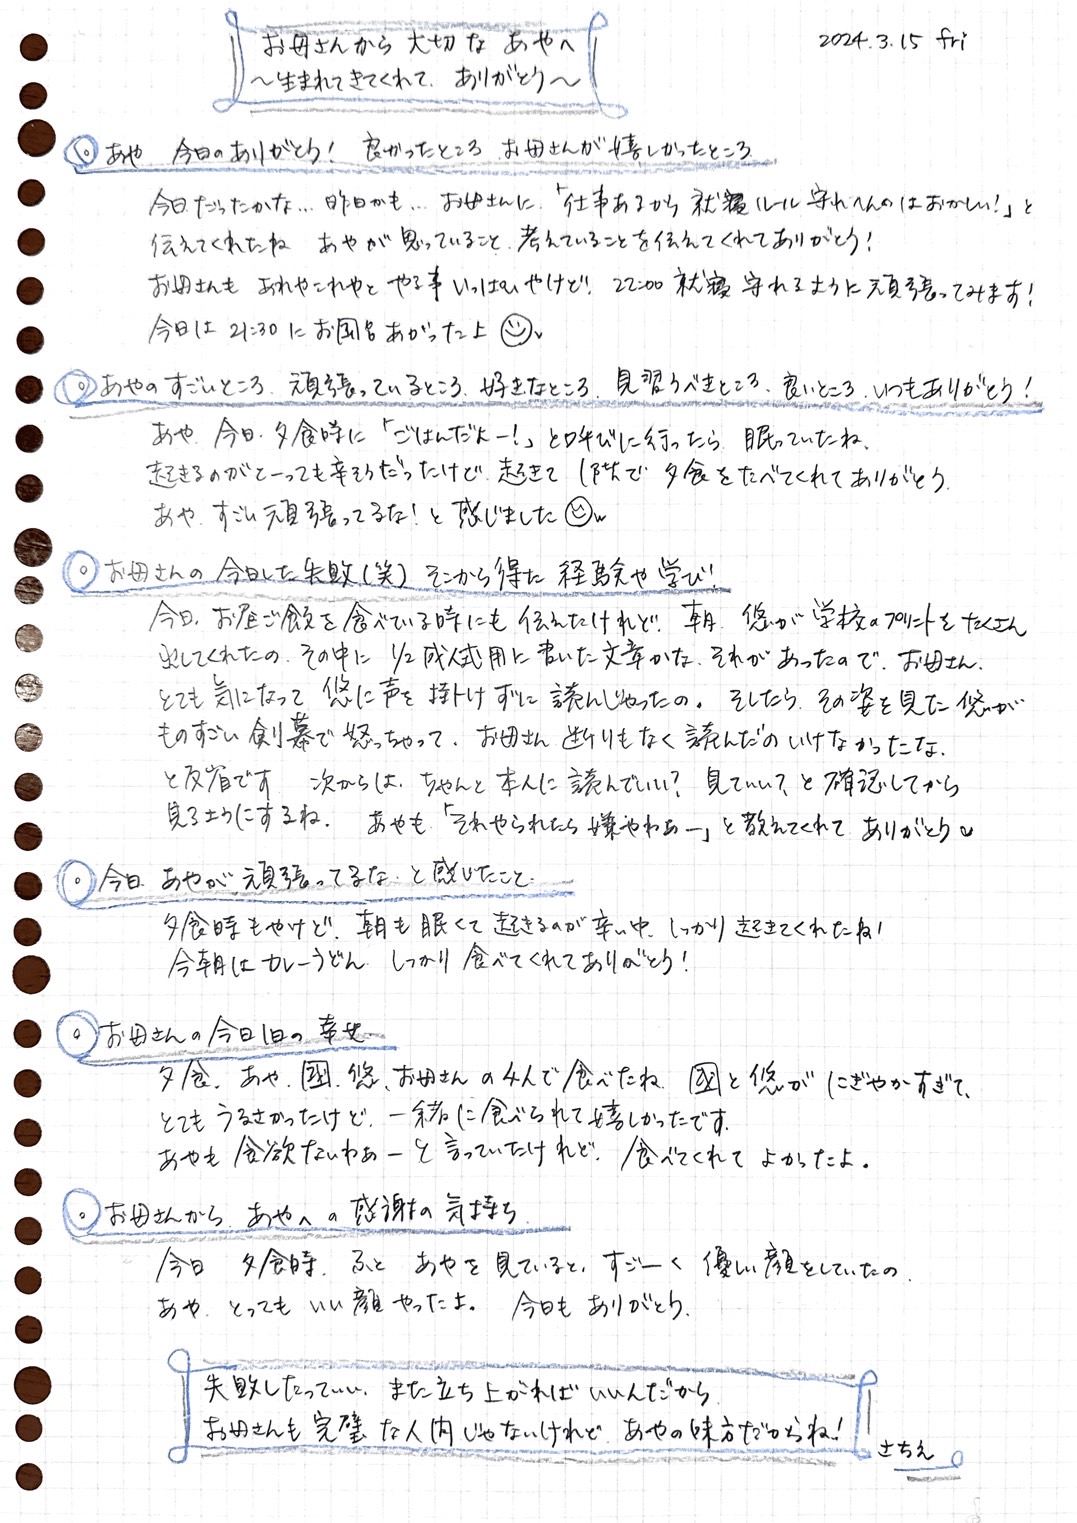 お母さんから 大切な あやへ
2024.3.15 fri
～生まれてきてくれて ありがとう～
あや 今日のありがとう! 良かったところ お母さんが嬉しかったところ
今日だったかな… 昨日かも… お母さんに、「仕事あるから 就寝ルール 守れへんのはおかしい!」と
伝えてくれたね あやが思っていること、考えていることを伝えてくれてありがとう!
お母さんも あれやこれやと やる事 いっぱいやけど! 22:00 就寝 守れるように頑張ってみます!
今日は 21:30 にお風呂あがったよ
あやの すごいところ、頑張っているところ、好きなところ、見習うべきところ、良いところ、いつもありがとう!
あや、今日、夕食時に「ごはんだよー!」と呼びに行ったら 眠っていたね、
起きるのがとーっても辛そうだったけど、起きて 1階で 夕食をたべてくれてありがとう
あや、すごい頑張ってるな!と感じました
お母さんの 今日した失敗(笑) そこから得た 経験や学び!
今日、お昼ご飯を食べている時にも 伝えたけれど、朝、悠が学校のプリントをたくさん
出してくれたの、その中に 1/2成人式用に書いた文章かな、それがあったので、お母さん、
とても気になって 悠に声を掛けずに読んじゃったの。そしたら、その姿を見た悠が
ものすごい剣幕で怒っちゃって、お母さん 断りもなく読んだの いけなかったな、
と反省です 次からは、ちゃんと本人に読んでいい? 見ていい?と確認してから
見るようにするね、 あやも「それやられたら 嫌やわぁー」と教えてくれて ありがとう
今日、あやが 頑張ってるな と感じたこと、
夕食時もやけど、朝も眠くて 起きるのが辛い中、しっかり起きてくれたね!
今朝はカレーうどん しっかり食べてくれてありがとう!
お母さんの今日1日の 幸せ
夕食、あや、圀、悠、お母さんの4人で食べたね 圀と悠が にぎやかすぎて、
とても うるさかったけど、一緒に食べられて嬉しかったです
あやも 食欲ないわぁーと言っていたけれど、食べてくれて よかったよ。
お母さんから、あやへの感謝の気持ち
今日 夕食時、ふと あやを見ていると、すごーく 優しい顔をしていたの
あや、とっても いい顔やったよ。 今日も ありがとう
失敗したっていい、また立ち上がれば いいんだから
お母さんも 完璧な人間じゃないけれど、あやの味方だからね!
さちえ